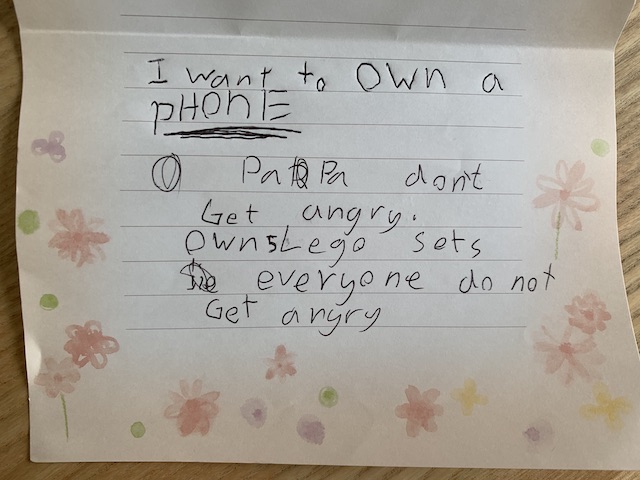 I want to OWN a
pHONE
Papa don't
Get angry.
Own 5 Lego sets
everyone do not
Get angry